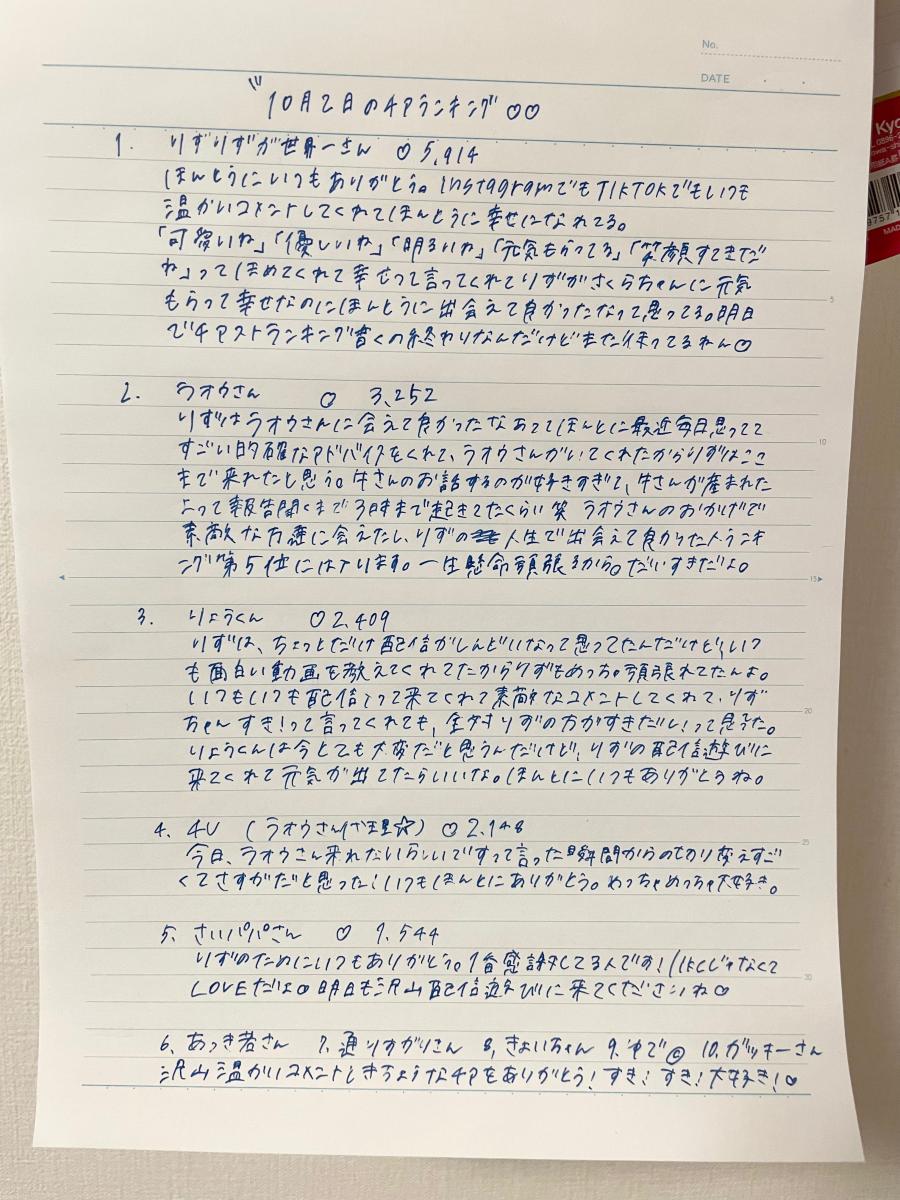 No.
DATE
"10月2日のチアランキング"♡♡
1. りずりずが世界一さん ♡5,914
ほんとうにいつもありがとう。InstagramでもTIKTOKでもいつも
温かいコメントしてくれてほんとうに幸せになれてる。
「可愛いね」「優しいね」「明るいね」「元気もらってる」「笑顔すてきだ
ね」ってほめてくれて幸せって言ってくれてりずがさくらちゃんに元気
もらって幸せなのにほんとうに出会えて良かったなって思ってる。明日
でチアストランキング書くの終わりなんだけどまた待ってるねん♡
2. ラオウさん ♡ 3,252
りずはラオウさんに会えて良かったなあってほんとに最近毎日思ってて
すごい的確なアドバイスをくれて、ラオウさんがいてくれたからりずはここ
まで来れたと思う。牛さんのお話するのが好きすぎて、牛さんが産まれた
よって報告聞くまで3時まで起きてたくらい笑 ラオウさんのおかげで
素敵な方達に会えたし、りずの人生で出会えて良かった人ランキ
ング第5位にはいります。一生懸命頑張るから。だいすきだよ。
3. りょうくん ♡2,409
りずは、ちょっとだけ配信がしんどいなって思ってたんだけど、いつ
も面白い動画を教えてくれてたからりずもめっちゃ頑張れてたんよ。
いつもいつも配信って来てくれて素敵なコメントしてくれて、りず
ちゃんすき!って言ってくれても、絶対りずの方がすきだし!って思うた。
りょうくんは今とても大変だと思うんだけど、りずの配信遊びに
来てくれて元気が出てたらいいな。ほんとにいつもありがとうね。
4. 4U (ラオウさん代理☆) ♡2,148
今日、ラオウさん来れないらしいですって言った瞬間からの切り変えすご
くてさすがだと思った!いつもほんとにありがとう。めっちゃめっちゃ大好き。
5. さいパパさん ♡ 1,544
りずのためにいつもありがとう。1番感謝してる人です!likeじゃなくて
LOVEだよ♡明日も沢山配信遊びに来てくださいね♡
6. あっき君さん 7. 通りすがりさん 8. きょいちゃん 9. ゆで@ 10. ガッキーさん
沢山温かいコメントときちょうなチアをありがとう!すき!すき!大好き!♡
5
10
15
20
25
30
Kyo
MAD